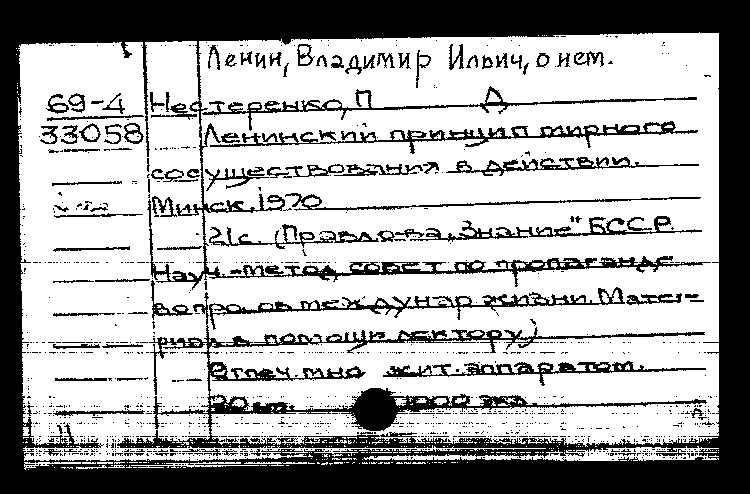 Ленин, Владимир Ильич, о нем.
69-4 Нестеренко, П Д
33058 Ленинский принцип мирного
сосуществования в действии.
Минск, 1970
21с. (Правл. о-ва "Знание" БССР.
Науч.-метод. совет по пропаганде
вопросов междунар жизни. Мате-
риал в помощь лектору)
Отпеч. множит. аппаратом.
20 1000 экз.